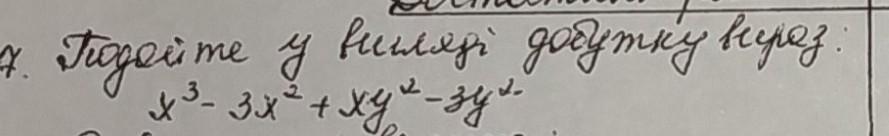 7. Подайте у вигляді добутку вираз:
x³ - 3x² + xy² - 3y²